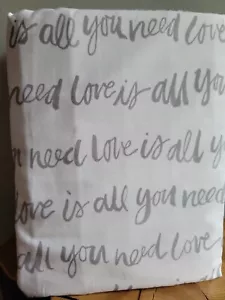 is all you need love
need love is all you
you need love is all y
love is all you need
all you need love
is all you need